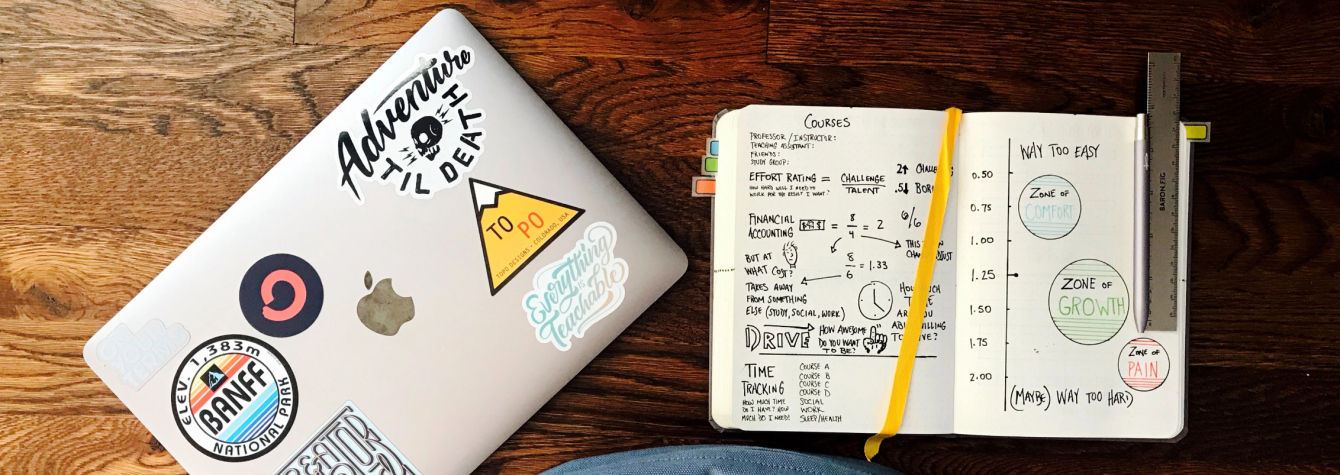 Adventure
TIL DEATH
TO
PO
TOPO DESIGNS - COLORADO, USA
Everything
is
Teachable
ELEV. 1,383m
BANFF
NATIONAL PARK
COURSES
PROFESSOR / INSTRUCTOR:
TEACHING ASSISTANT:
FRIENDS:
STUDY GROUP:
EFFORT RATING = CHALLENGE
TALENT
HOW HARD WILL I NEED TO
WORK FOR THE RESULT I WANT?
2↑
.5↓
FINANCIAL
ACCOUNTING = 8
4 = 2
6/6
THIS
BUT AT
WHAT COST?
8
6 = 1.33
TAKES AWAY
FROM SOMETHING
ELSE (STUDY, SOCIAL, WORK)
DRIVE
HOW AWESOME
DO YOU WANT
TO BE?
TIME
TRACKING
HOW MUCH TIME
DO I HAVE? HOW
MUCH DO I NEED?
COURSE A
COURSE B
COURSE C
COURSE D
SOCIAL
WORK
SLEEP/HEALTH
WAY TOO EASY
0.50
0.75
1.00
1.25
1.50
1.75
2.00
ZONE OF
COMFORT
ZONE OF
GROWTH
ZONE OF
PAIN
(MAYBE) WAY TOO HARD
BARON FIG